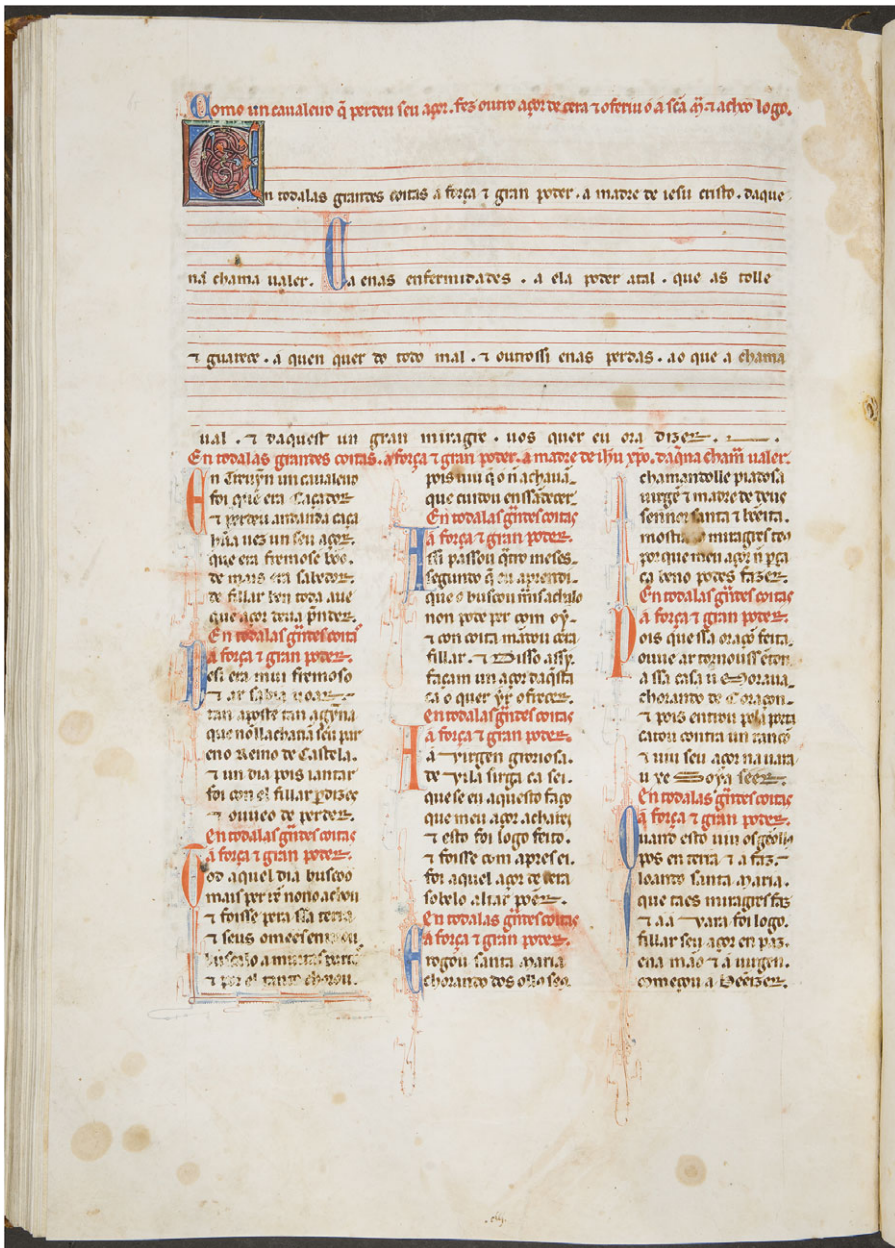 Como un caualeiro q̃ perdeu seu açor. fez outro açor de cera ⁊ ofereu o a scã mª ⁊ acheo logo.
En todalas grandes coitas á força ⁊ gran poder. a madre de iesu cristo. daque
na chama ualer. Ca enas enfermidades. a ela poder atal. que as tolle
⁊ guarece. a quen quer de todo mal. ⁊ outrossi enas perdas. ao que a chama
ual. ⁊ daquest un gran miragre. uos quer eu ora dizer.
En todalas grandes coitas. á força ⁊ gran poder. a madre de ihũ xp̃o. daq̃na cham̃ ualer.
En Treuỹn un caualeiro
foi que era Caçador
⁊ perdeu andanda caça
hũa uez un seu açor.
que era fremose bõo.
de mais era sabedor.
de fillar ben toda aue
que açor deua p̃nder.
En todalas g̃ndes coitas
á força ⁊ gran poder.
Desi era mui fremoso
⁊ ar sabia uoar.
tan aposte tan agỹna
que nollachauã seu par
eno Reino de Castela.
⁊ un dia pois iantar
foi con el fillar p̃dizes
⁊ ouueo de perder.
En todalas g̃ndes coitas
á força ⁊ gran poder.
Tod aquel dia buscoo
mais per rẽ nono achou
⁊ foisse pera ssa terra
⁊ seus omees
buscalo a muitas partes
⁊ por el tanto chorou.
pois uiu q̃ o nõ achauã
que cuidou enssãdecer.
En todalas g̃ndes coitas
á força ⁊ gran poder.
Assi passou q̃tro meses.
segundo q̃ eu aprendi.
que o buscou
non pode per com oý.
⁊ con coita mãdou cera
fillar. ⁊ Disso assỹ.
façam un açor daq̃sta
ca o quer ỹr ofrecer.
En todalas g̃ndes coitas
á força ⁊ gran poder.
Aá uirgen groriosa.
de Vila sirga ca sei.
que se eu aquesto faço
que meu açor acharei
⁊ esto foi logo feito.
⁊ foisse com apres ei.
for aquel açor de cera
sobelo altar põer.
En todalas g̃ndes coitas
á força ⁊ gran poder.
E rogou santa maria
chorando dos ollos
chamandolle piadosa
uirgẽ ⁊ madre de deus
sennor santa ⁊ bẽeita.
mostra miragres teus
por que meu açor nõ p̃ça
ca beno podes fazer.
En todalas g̃ndes coitas
á força ⁊ gran poder.
Pois que ssa oraçõ feita.
ouue ar tornouss entõ.
a ssa casa u Moraua.
chorando de Coraçon.
⁊ pois entrou pela porta
catou contra un rancõ
⁊ uiu seu açor na uara
u xe Soya seer.
En todalas g̃ndes coitas
á força ⁊ gran poder.
Quand esto uiu os gẽollos
pos en terra ⁊ a faz.
loando santa maria.
que taes miragres faz
⁊ aá Vara foi logo.
fillar seu açor en paz.
ena mão ⁊ á uirgen.
começou a Bẽeizer.